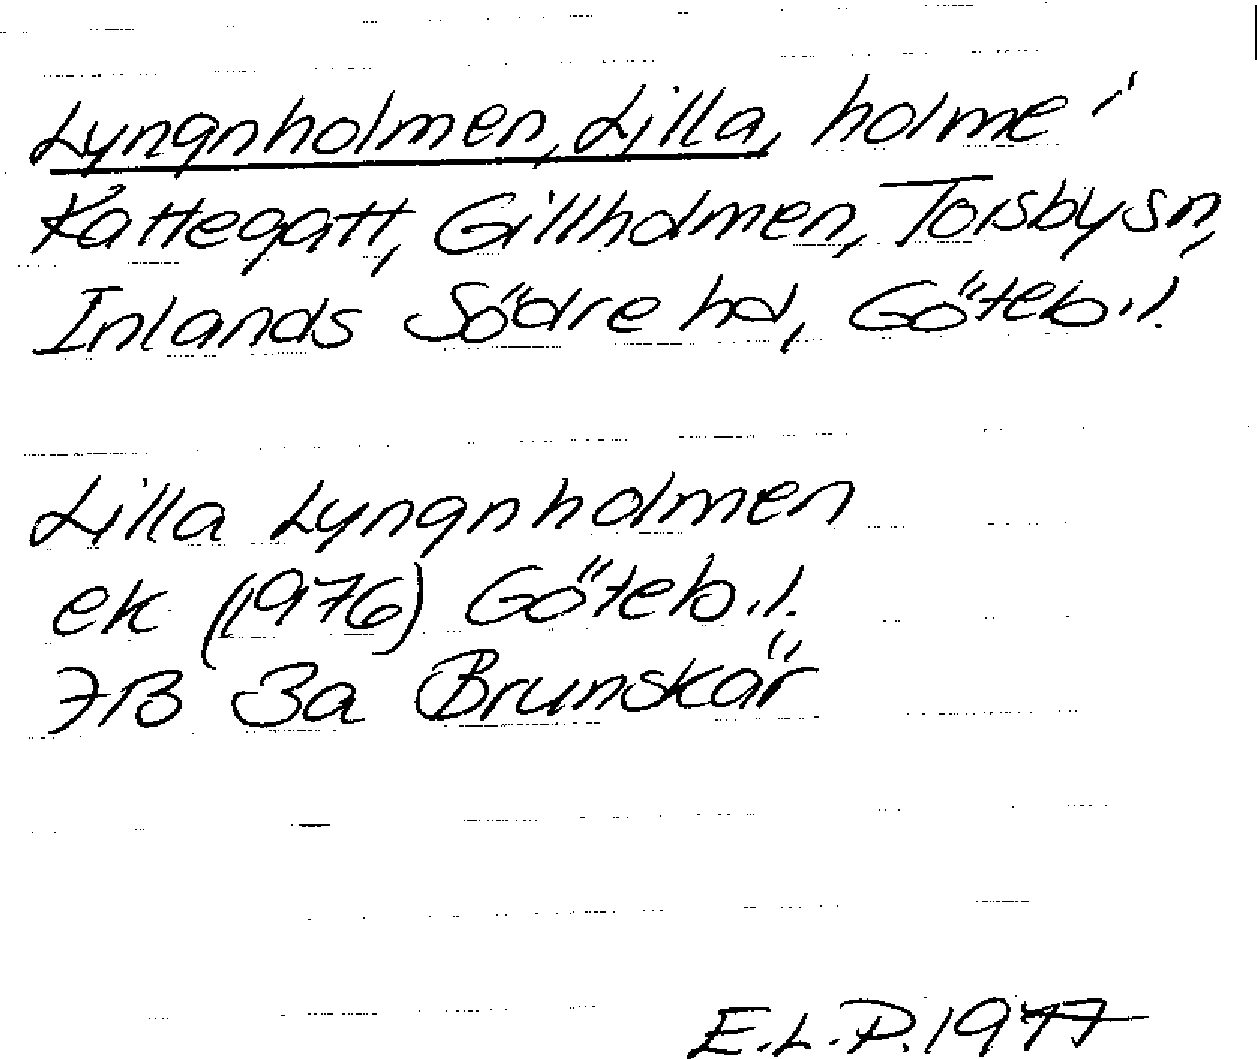 Lyngnholmen, Lilla, holme i
Kattegatt, Gillholmen, Torsby sn,
Inlands Södre hd, Göteb. l.
Lilla Lyngnholmen
ek (1976) Göteb. l.
7B 3a Brunskär
E.L.P. 1977